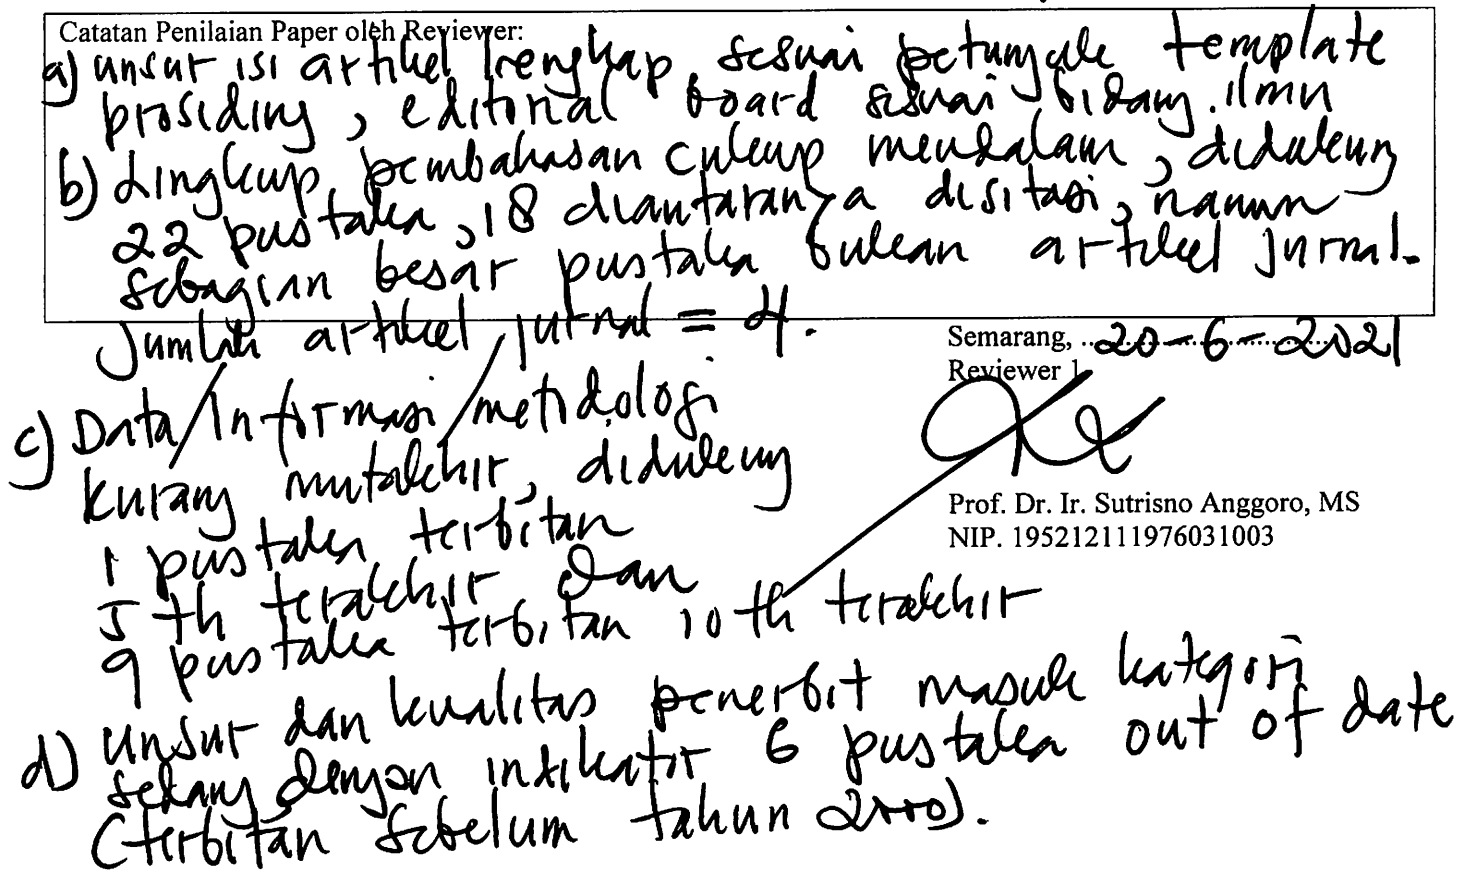 Catatan Penilaian Paper oleh Reviewer:
a) unsur isi artikel lengkap sesuai petunjuk template
prosiding, editorial board sesuai bidang ilmu
b) Lingkup pembahasan cukup mendalam, didukung
22 pustaka, 18 diantaranya disitasi, namun
sebagian besar pustaka bukan artikel jurnal.
Jumlah artikel jurnal = 4.
Semarang, ..20-6-2021
Reviewer 1
c) Data/Informasi/metodologi
kurang mutakhir, didukung
1 pustaka terbitan
5 th terakhir dan
9 pustaka terbitan 10 th terakhir
Prof. Dr. Ir. Sutrisno Anggoro, MS
NIP. 195212111976031003
d) unsur dan kualitas penerbit masuk kategori
sedang dengan indikator 6 pustaka out of date
(terbitan sebelum tahun 2000).